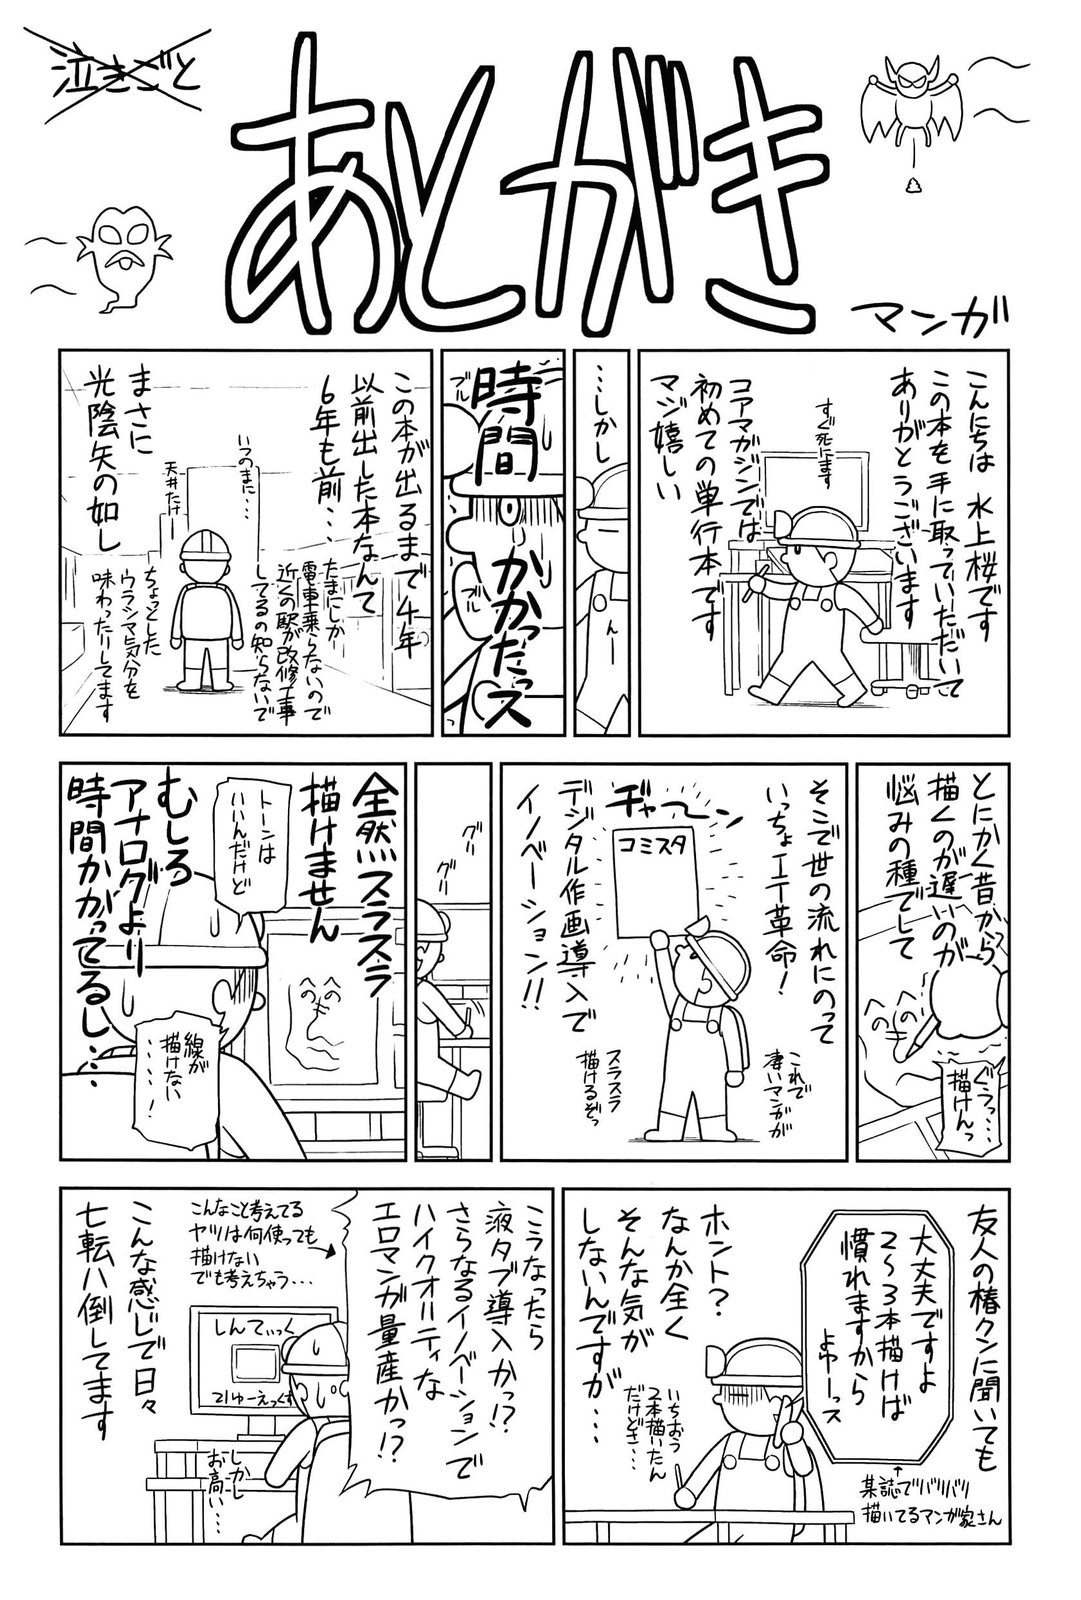 泣きごと
あとがき
マンガ
こんにちは 水上桜です
この本を手に取っていただいて
ありがとうございます
すぐ死にます
コアマガジンでは
初めての単行本です
マジ嬉しい
…しかし
んー
時間
かかったっス
ブル
ブル
この本が出るまで4年
以前出した本なんて
6年も前…
たまにしか
電車乗らないので
近くの駅が改修工事
してるの知らないで
いつのまに…
天井たけー
まさに
光陰矢の如し
ちょっとした
ウラシマ気分を
味わったりしてます
とにかく昔から
描くのが遅いのが
悩みの種でして
ぐうっ…
描けんっ
そこで世の流れにのって
いっちょIT革命!
ヂャーン
コミスタ
デジタル作画導入で
イノベーション!!
これで
凄いマンガが
スラスラ
描けるぞっ
グリ
グリ
全然スラスラ
描けません
トーンは
いいんだけど
むしろ
アナログより
時間かかってるし…
線が
描けない
……!
友人の椿クンに聞いても
大丈夫ですよ
2〜3本描けば
慣れますから
よゆーっス
某誌でバリバリ
描いてるマンガ家さん
ホント?
なんか全く
そんな気が
しないんですが…
いちおう
2本描いたん
だけどぎ…
こうなったら
液タブ導入かっ!?
さらなるイノベーションで
ハイクオリティな
エロマンガ量産かっ!?
こんなこと考えてる
ヤツは何使っても
描けない
でも考えちゃう…
しんてぃっく
21ゆーえっくす
しかし
お高い…
こんな感じで日々
七転八倒してます